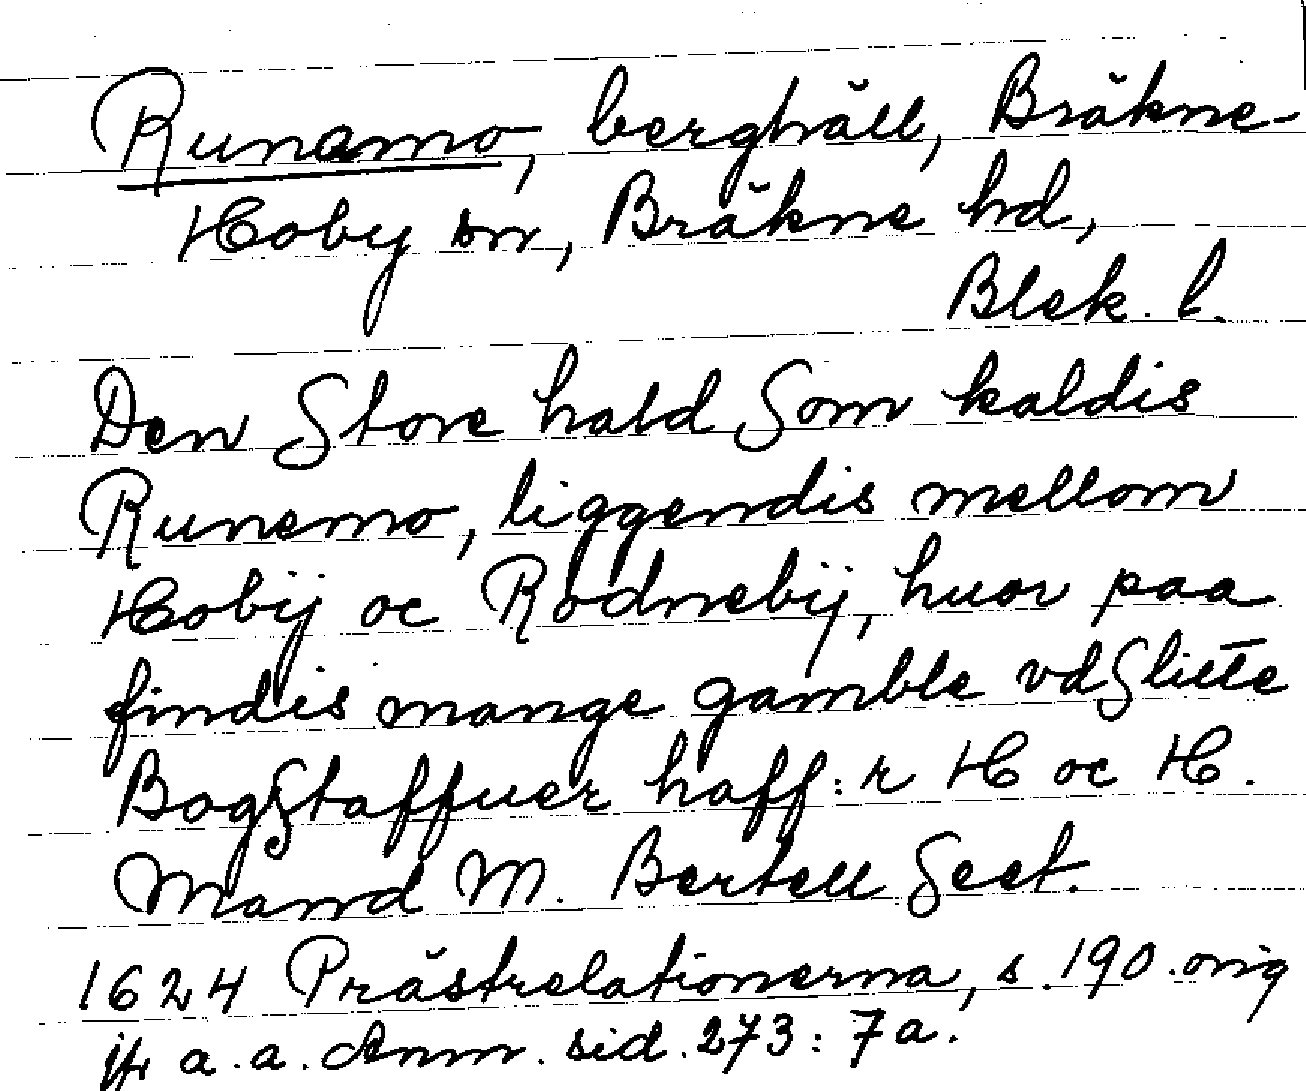 Runamo, berghäll, Bräkne-
Hoby sn, Bräkne hd,
Blek. l.
Den Store hald Som kaldis
Runemo, liggendis mellom
Hobÿ oc Rodnebÿ, huor paa
findis mange gamble vdSlictē
BogStaffuer haff: r H oc H.
Mand M. Bertell Seet.
1624 Prästrelationerna, s. 190. orig
jfr a. a. Anm. sid. 273: 7a.